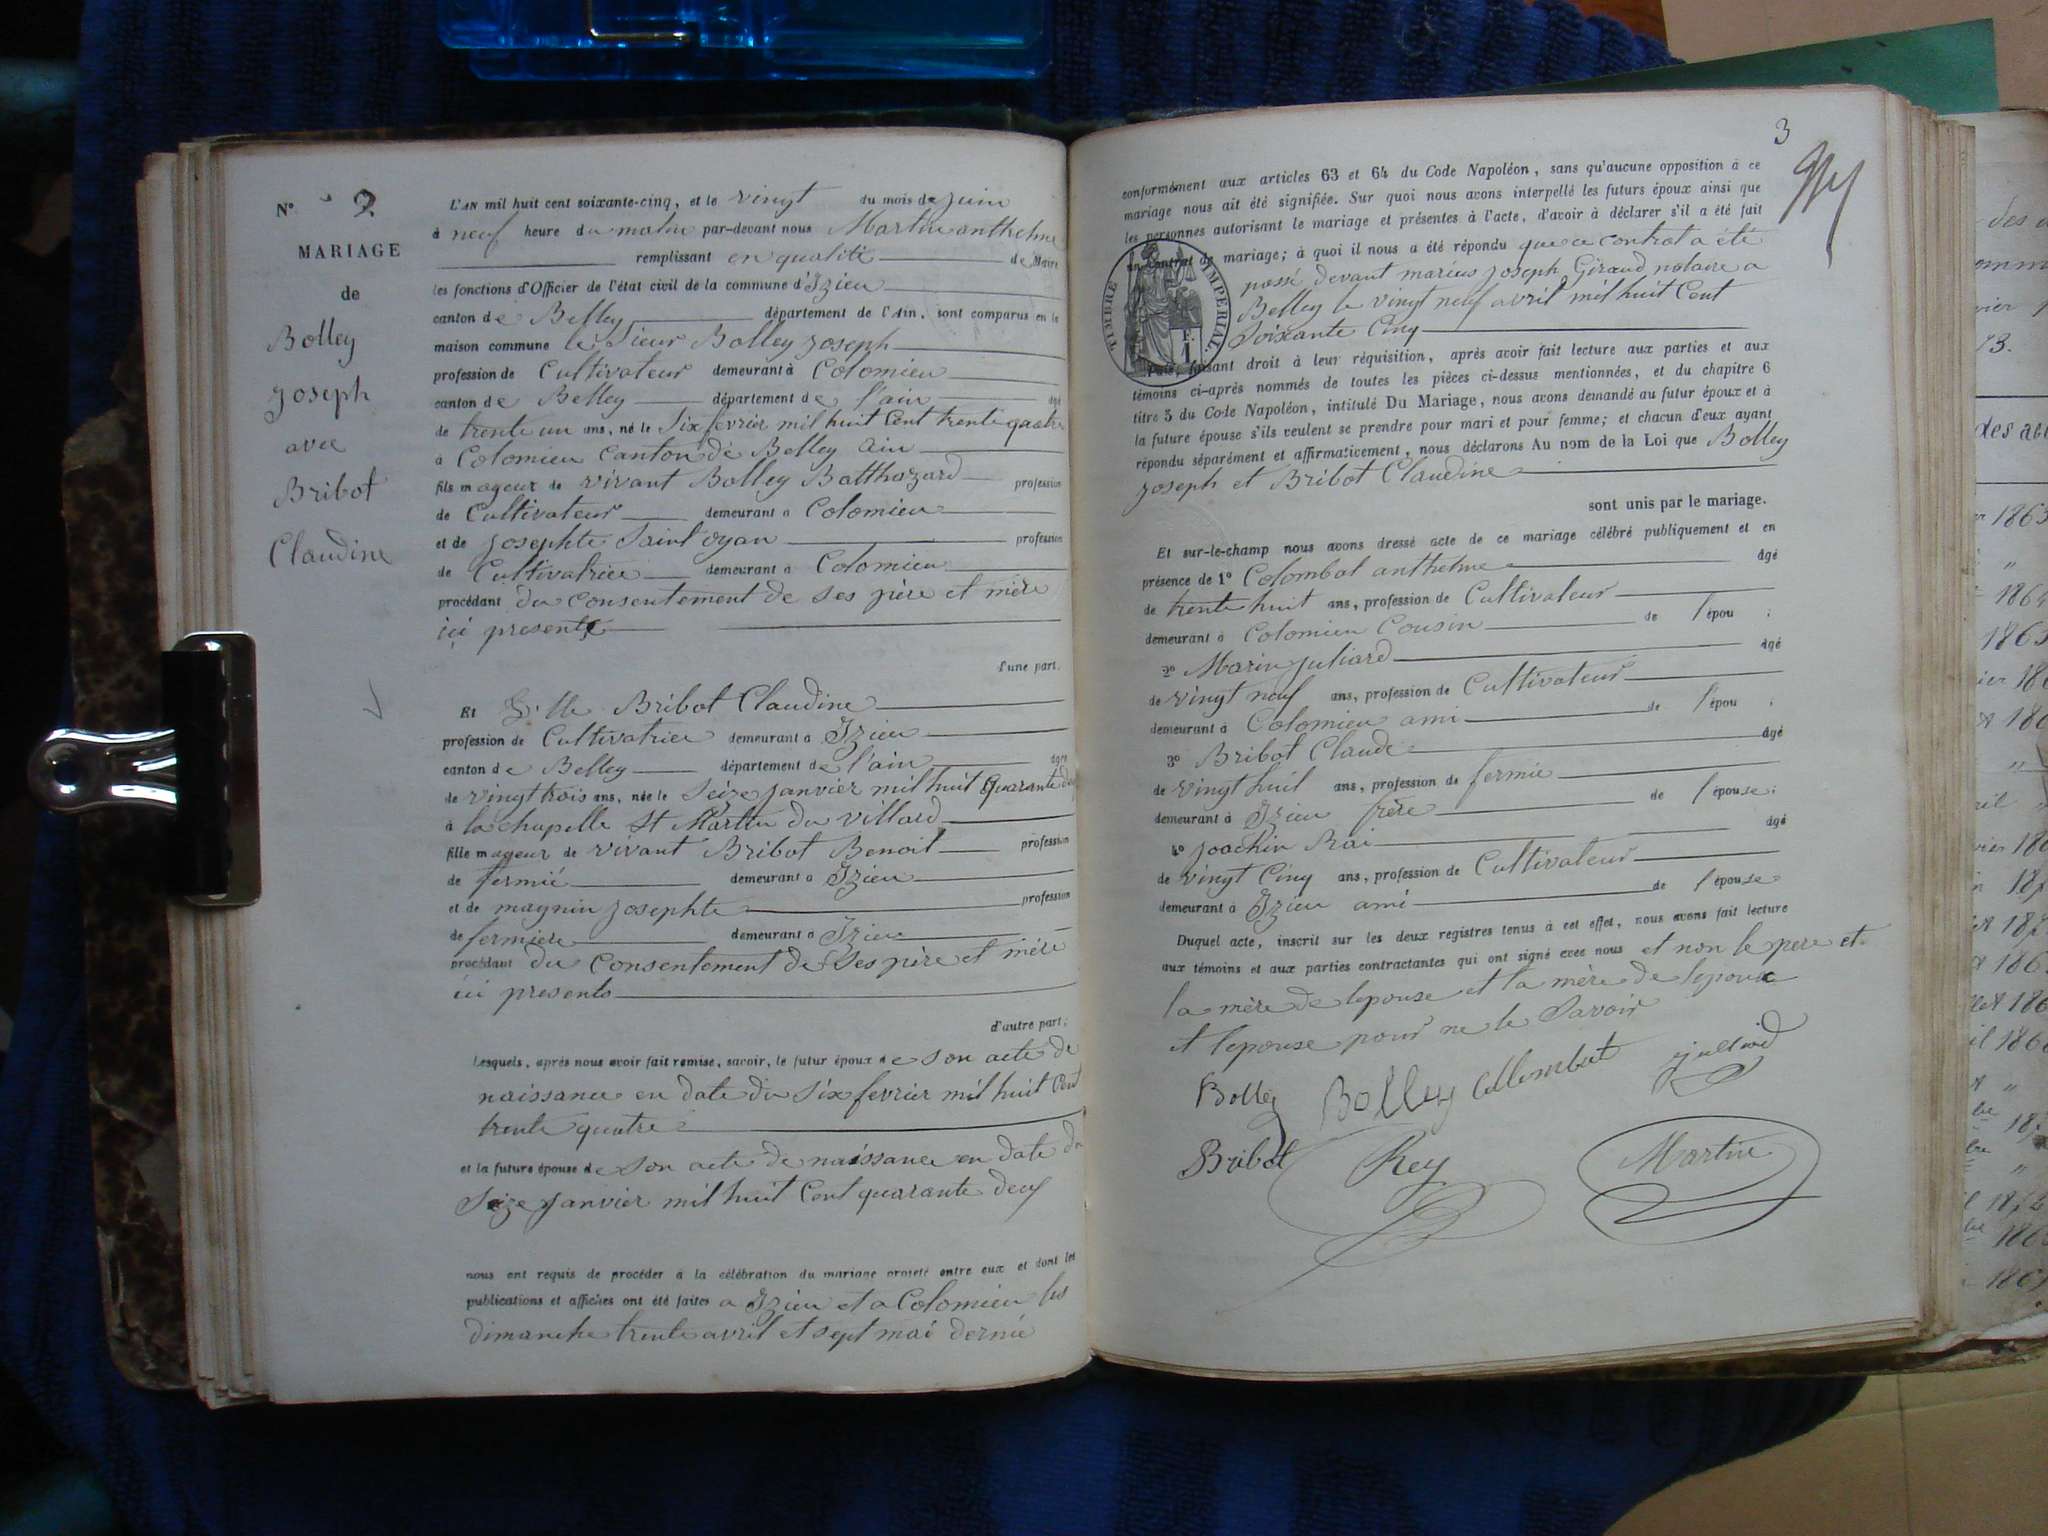 N° 2
MARIAGE
de
Bolley
Joseph
avec
Bribot
Claudine
L'AN mil huit cent soixante-cinq, et le vingt du mois de juin
à neuf heure du matin par-devant nous Martin anthelme
remplissant en qualité de Maire
les fonctions d'Officier de l'état civil de la commune d'Izieu
canton de Belley département de l'Ain, sont comparus en la
maison commune le Sieur Bolley Joseph
profession de Cultivateur demeurant à Colomieu
canton de Belley département de l'ain âgé
de trente un ans, né le Six fevrier mil huit Cent trente quatre
à Colomieu Canton de Belley ain
fils mageur de vivant Bolley Balthazard profession
de Cultivateur demeurant à Colomieu
et de Josephte Saint oyan profession
de Cultivatrice demeurant à Colomieu
procédant du consentement de ses père et mère
ici presents
d'une part.
Et Bribot Claudine
profession de Cultivatrice demeurant à Izieu
canton de Belley département de l'ain âgée
de vingt trois ans, née le Seize janvier mil huit quarante
à la chapelle St Martin du villard
fille mageur de vivant Bribot Benoit profession
de fermié demeurant à Izieu
et de magnin Josephte profession
de fermiere demeurant à Izieu
procédant du Consentement de Ses père et mère
ici presents
d'autre part;
Lesquels, après nous avoir fait remise, savoir, le futur époux de son acte de
naissance en date du Six fevrier mil huit Cent
trente quatre
et la future épouse de son acte de naissance en date du
Seize janvier mil huit Cent quarante deux
nous ont requis de procéder à la célébration du mariage projeté entre eux et dont les
publications et affiches ont été faites a Izieu et a Colomieu les
dimanche trente avril et sept mai dernié
3
conformément aux articles 63 et 64 du Code Napoléon, sans qu'aucune opposition à ce
mariage nous ait été signifiée. Sur quoi nous avons interpellé les futurs époux ainsi que
les personnes autorisant le mariage et présentes à l'acte, d'avoir à déclarer s'il a été fait
un contrat de mariage; à quoi il nous a été répondu que ce contrat a été
passé devant marius Joseph Giraud notaire a
Belley le vingt neuf avril mil huit Cent
Soixante Cinq
TIMBRE IMPERIAL
F. 1
Puis, faisant droit à leur réquisition, après avoir fait lecture aux parties et aux
témoins ci-après nommés de toutes les pièces ci-dessus mentionnées, et du chapitre 6
titre 5 du Code Napoléon, intitulé Du Mariage, nous avons demandé au futur époux et à
la future épouse s'ils veulent se prendre pour mari et pour femme; et chacun d'eux ayant
répondu séparément et affirmativement, nous déclarons Au nom de la Loi que Bolley
Joseph et Bribot Claudine
sont unis par le mariage.
Et sur-le-champ nous avons dressé acte de ce mariage célébré publiquement et en
présence de 1° Colombat anthelme âgé
de trente huit ans, profession de Cultivateur
demeurant à Colomieu Cousin de l'épou ;
2° Marin Juliard âgé
de vingt neuf ans, profession de Cultivateur
demeurant à Colomieu ami de l'épou ;
3° Bribot Claude âgé
de vingt huit ans, profession de fermié
demeurant à Izieu frère de l'épouse;
4° Joachin Rai âgé
de vingt Cinq ans, profession de Cultivateur
demeurant à Izieu ami de l'épouse
Duquel acte, inscrit sur les deux registres tenus à cet effet, nous avons fait lecture
aux témoins et aux parties contractantes qui ont signé avec nous et non le pere et
la mère de lepouse et la mère de lepoux
et lepouse pour ne le Savoir
Bolley Bolley Collombat juliard
Bribot Rey Martin